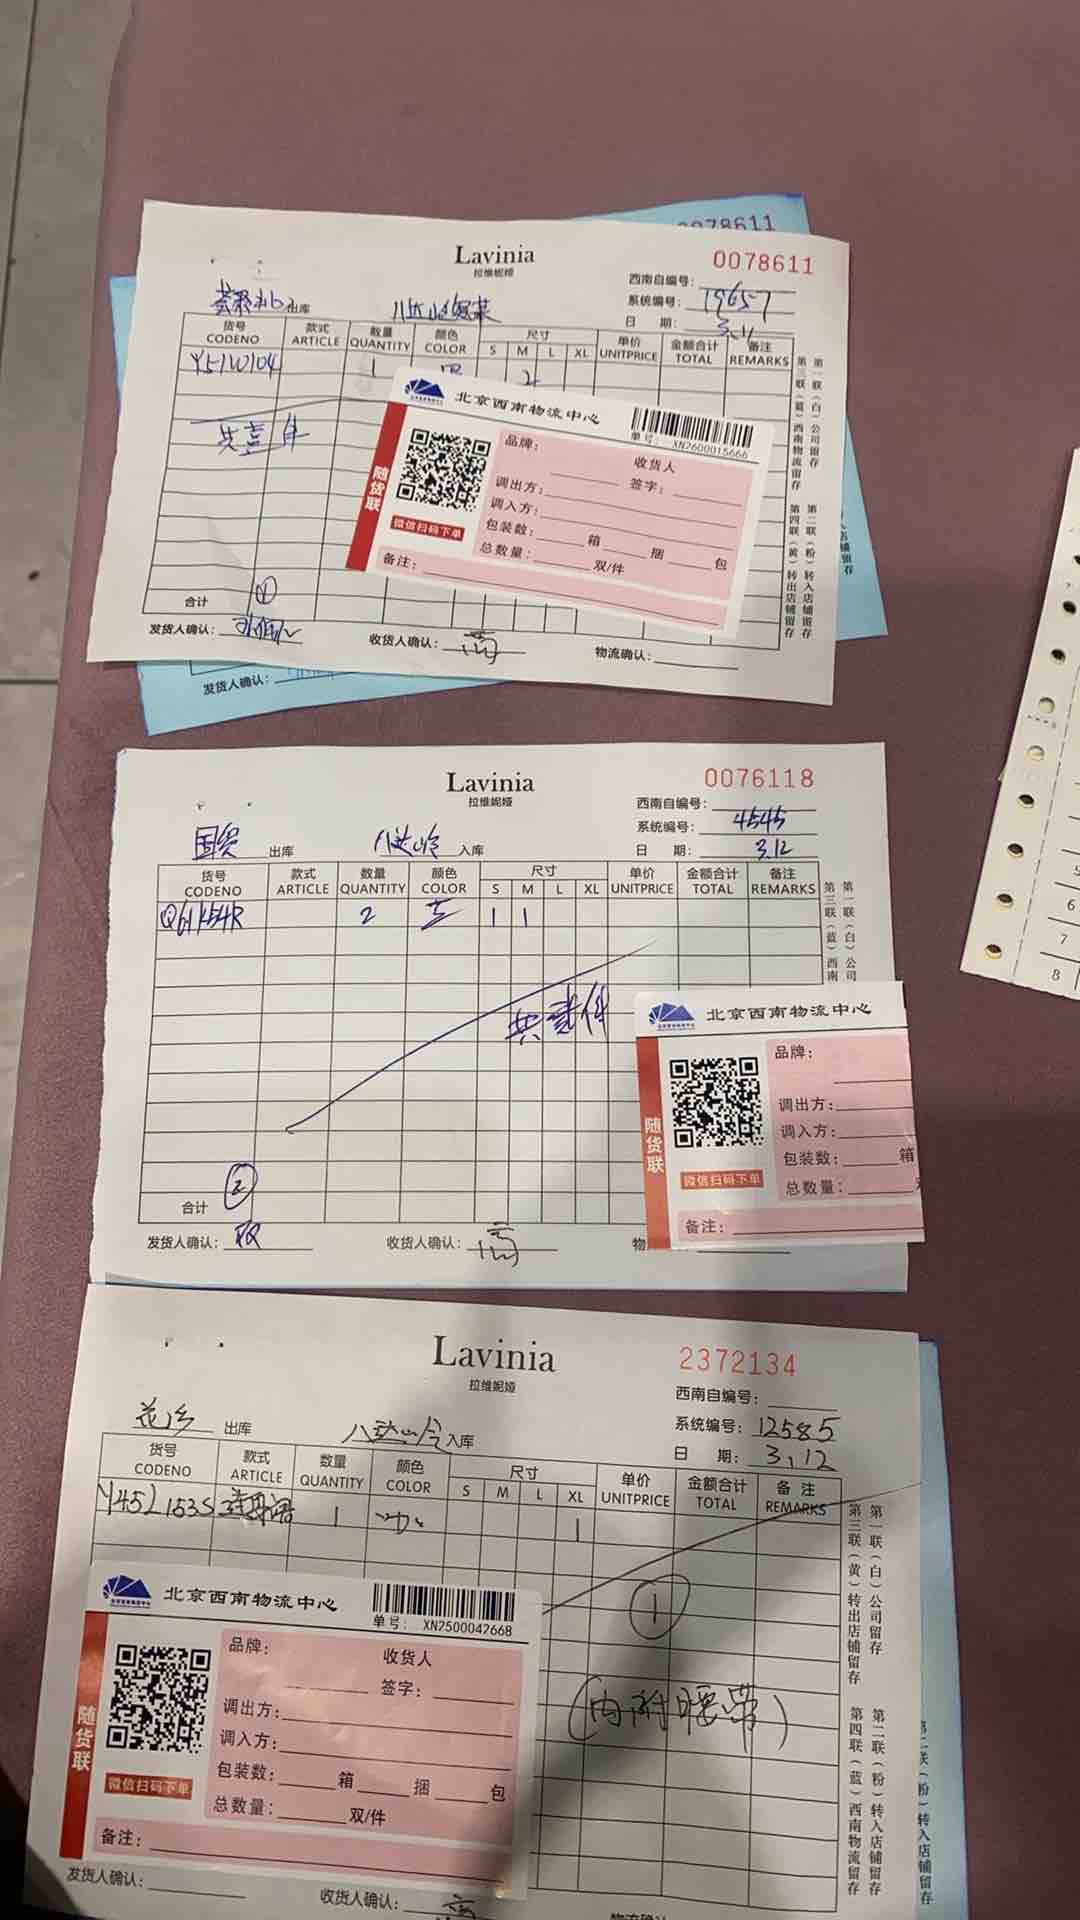 0078611
Lavinia
0078611
拉维妮娅
西南自编号:
系统编号: 19657
出库
日 期: 3.11
货号 款式 数量 颜色 尺寸 单价 金额合计 备注
CODENO ARTICLE QUANTITY COLOR S M L XL UNITPRICE TOTAL REMARKS
Y51W104 1
共壹件
北京西南物流中心
单号: XN2600015666
品牌: 收货人
签字:
调出方:
调入方:
包装数: 箱 捆 包
总数量: 双/件
随货联
微信扫码下单
备注:
合计 1
发货人确认: 收货人确认: 物流确认:
第一联(白)公司留存 第二联(粉)转入店铺留存
第三联(蓝)西南物流留存 第四联(黄)转出店铺留存
发货人确认:
Lavinia
0076118
拉维妮娅
西南自编号:
系统编号: 4545
国贸 出库 八达岭 入库
日 期: 3.12
货号 款式 数量 颜色 尺寸 单价 金额合计 备注
CODENO ARTICLE QUANTITY COLOR S M L XL UNITPRICE TOTAL REMARKS
Q61K54R 2 1 1
第一联(白)公司
第三联(蓝)西南
共贰件
北京西南物流中心
品牌:
调出方:
调入方:
包装数: 箱
总数量:
随货联
微信扫码下单
备注:
合计 2
发货人确认: 收货人确认: 物
Lavinia
2372134
拉维妮娅
西南自编号:
系统编号: 12585
花乡 出库 八达岭 入库
日 期: 3.12
货号 款式 数量 颜色 尺寸 单价 金额合计 备注
CODENO ARTICLE QUANTITY COLOR S M L XL UNITPRICE TOTAL REMARKS
Y452153S 连身裙 1 1
1
(内附腰带)
北京西南物流中心
单号: XN2500042668
品牌: 收货人
签字:
调出方:
调入方:
包装数: 箱 捆 包
总数量: 双/件
随货联
微信扫码下单
备注:
发货人确认: 收货人确认:
第一联(白)公司留存 第二联(粉)转入店铺留存
第三联(黄)转出店铺留存 第四联(蓝)西南物流留存
转入店铺留存
6
7
8